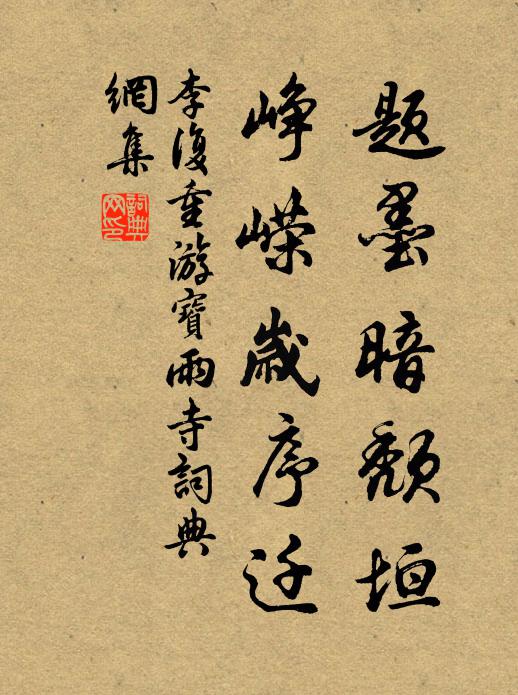 题墨暗颓垣
峥嵘岁序迁
李復重游寶雨寺詞典
網集
詞典網印